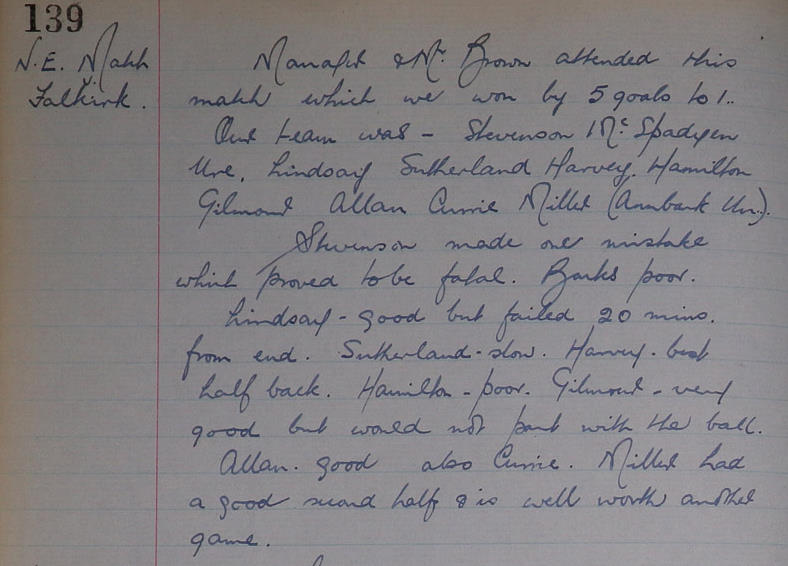 139
N. E. Match
v.
Falkirk.
Manager & Mr. Brown attended this
match which we won by 5 goals to 1.
Our team was - Stevenson McSpadyen
Ure, Lindsay Sutherland Harvey, Hamilton
Gilmour Allan Currie Miller (Annbank Un.).
Stevenson made one mistake
which proved to be fatal. Backs poor.
Lindsay - good but failed 20 mins.
from end. Sutherland - slow. Harvey - best
half back. Hamilton - poor. Gilmour - very
good but would not part with the ball.
Allan - good also Currie. Miller had
a good second half & is well worth another
game.